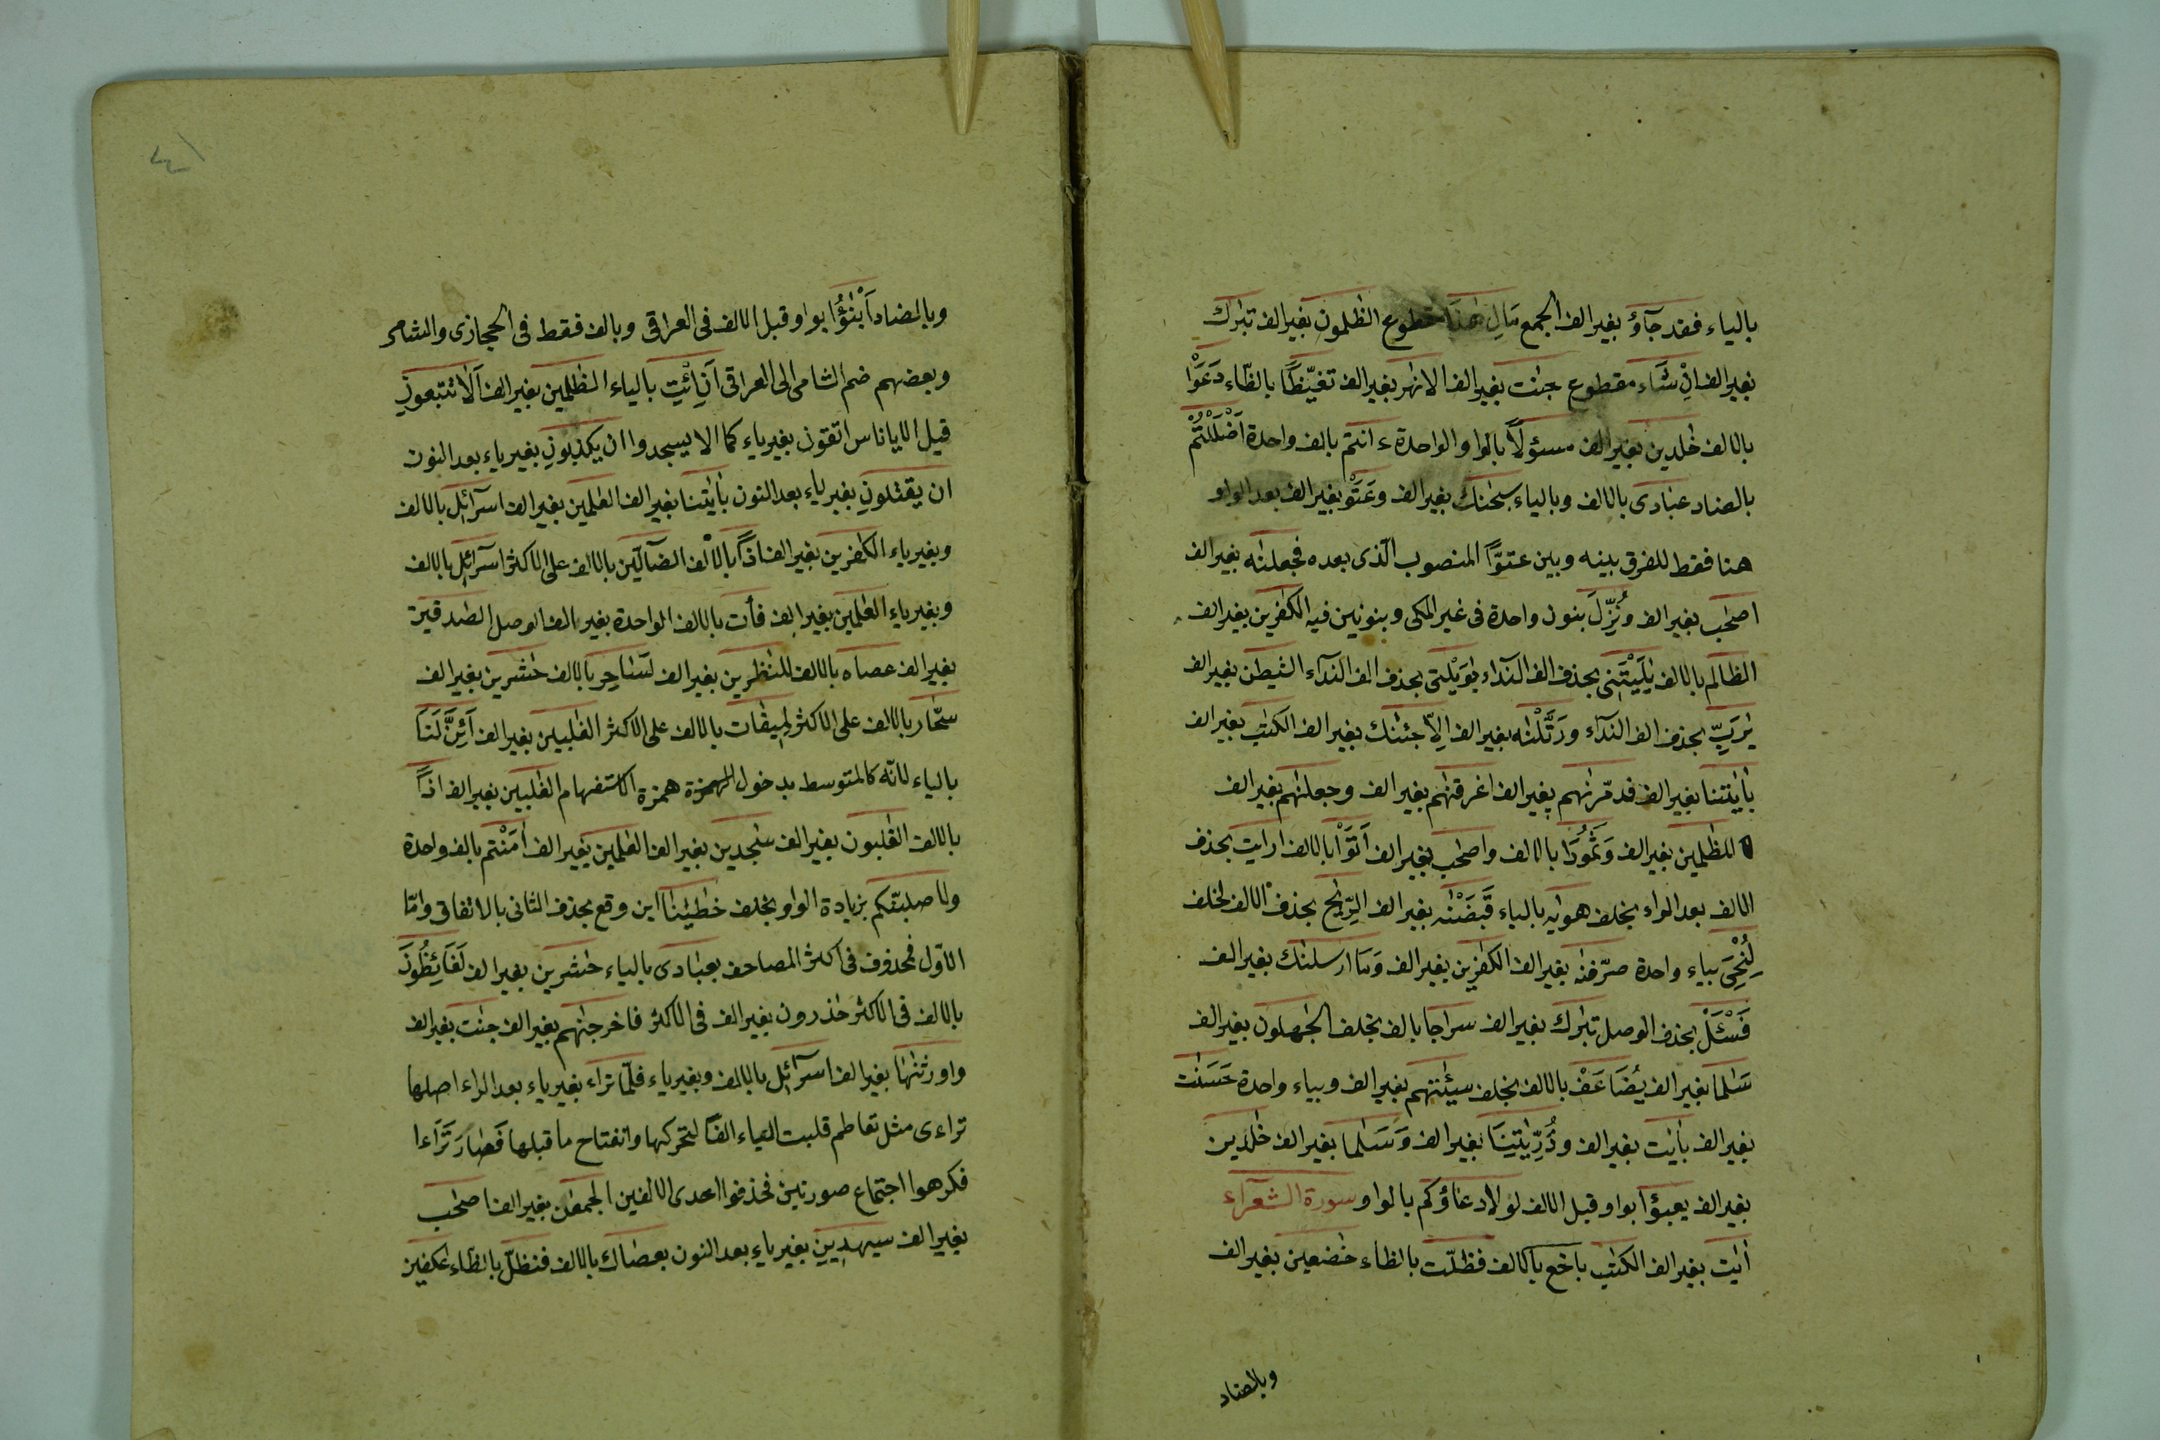 بالياء فقد جآؤ بغير الف الجمع مَالِ هٰذَا مقطوع الظٰلمون بغير الف تبٰرك
بغير الف انْ شَآء مقطوع جنٰت بغير الف الانهٰر بغير الف تغيّظًا بالظّاء دَعَوْا
بالالف خٰلدين بغير الف مسؤلًا بالواو الواحدة ء انتم بالف واحدة اَضْلَلْتُمْ
بالضاد عبَادى بالالف وبالياء سبحٰنك بغير الف وعَتَوْ بغير الف بعد الواو
هنا فقط للفرق بينه وبين عتوًّا المنصوب الّذى بعده فجعلنٰه بغير الف
اصحٰب بغير الف ونُزِّلَ بنون واحدة فى غير المكى وبنونين فيه الكٰفرين بغير الف
الظالم بالالف يٰلَيْتَنِى بحذف الف النّداء يٰوَيْلَتى بحذف الف النّدآء الشيطٰن بغير الف
يٰرَبِّ بحذف الف النّدآء ورَتَّلْنٰه بغير الف اِلّا جئنٰك بغير الف الكتٰب بغير الف
بأيٰتنا بغير الف فدمّرنٰهم بغير الف اغرقنٰهم بغير الف وجعلنٰهم بغير الف
للظٰلمين بغير الف وَثَمُودَا بالالف واصحٰب بغير الف اَتَوْا بالالف ارايت بحذف
الالف بعد الراء بخلف هوٰيه بالياء قَبَضْنٰه بغير الف الرِّيٰحَ بحذف الالف بخلف
لِنُحْيِىَ بياء واحدة صرّفنٰه بغير الف الكٰفرين بغير الف وَمَا ارسلنٰك بغير الف
فَسْـَٔلْ بحذف الوصل تبٰرك بغير الف سراجا بالف بخلف الجٰهلون بغير الف
سَلٰما بغير الف يُضَاعَفْ بالالف بخلف سيّئٰتهم بغير الف وبياء واحدة حَسَنٰت
بغير الف بأيٰت بغير الف وذُرِّيّٰتِنَا بغير الف وَسَلٰما بغير الف خٰلدين
بغير الف يعبؤا بواو قبل الالف لولا دعَاؤكم بالواو سورة الشعرآء
اٰيٰت بغير الف الكتٰب باخع بالالف فظلّت بالظاء خٰضعين بغير الف
وبالضاد
وبالضاد اَنْبٰؤُا بواو قبل الالف فى العراقى وبالف فقط فى الحجازى والشامى
وبعضهم ضم الشامى الى العراقى اَنِ ائْتِ بالياء الظٰلمين بغير الف اَلَا تتبعونِ
قيل الا ياناس اتقون بغير ياء كما الا يسجدوا ان يكذبونِ بغير ياء بعد النون
ان يقتلونِ بغير ياء بعد النون بأيٰتنا بغير الف العٰلمين بغير الف اسرآئل بالالف
وبغير ياء الكٰفرين بغير الف اذًا بالالف الضآلّين بالالف على الاكثر اسرآئل بالالف
وبغير ياء العٰلمين بغير الف فأت بالالف الواحدة بغير الف الوصل الصٰدقين
بغير الف عصاه بالالف للنٰظرين بغير الف لسَاحِر بالالف حٰشرين بغير الف
سحّار بالالف على الاكثر لميقات بالالف على الاكثر الغٰلبين بغير الف اَئِنَّ لَنَا
بالياء لانّه كالمتوسط بدخول الهمزة همزة الاستفهام الغٰلبين بغير الف اذًا
بالالف الغٰلبون بغير الف سٰجدين بغير الف العٰلمين بغير الف اٰمَنْتم بالف واحدة
ولاصلبنّكم بزيادة الواو بخلف خطٰيٰنا اين وقع بحذف الثانى بالاتفاق وامّا
الاوّل فمحذوف فى اكثر المصاحف بعبَادى بالياء حٰشرين بغير الف لَغَائِظُونَ
بالالف فى الاكثر حٰذرون بغير الف فى الاكثر فاخرجنٰهم بغير الف جنٰت بغير الف
واورثنٰهَا بغير الف اسرآئل بالالف وبغير ياء فلمّا تراء بغير ياء بعد الراء اصلها
تراءى مثل تعاطم قلبت الياء الفًا لتحركها وانفتاح ما قبلها فَصَارَ تَرَاءا
فكرهوا اجتماع صورتين فحذفوا احدى الالفين الجمعٰن بغير الف اصحٰب
بغير الف سيهدينِ بغير ياء بعد النون بعصَاك بالالف فنظلّ بالظاء عٰكفين